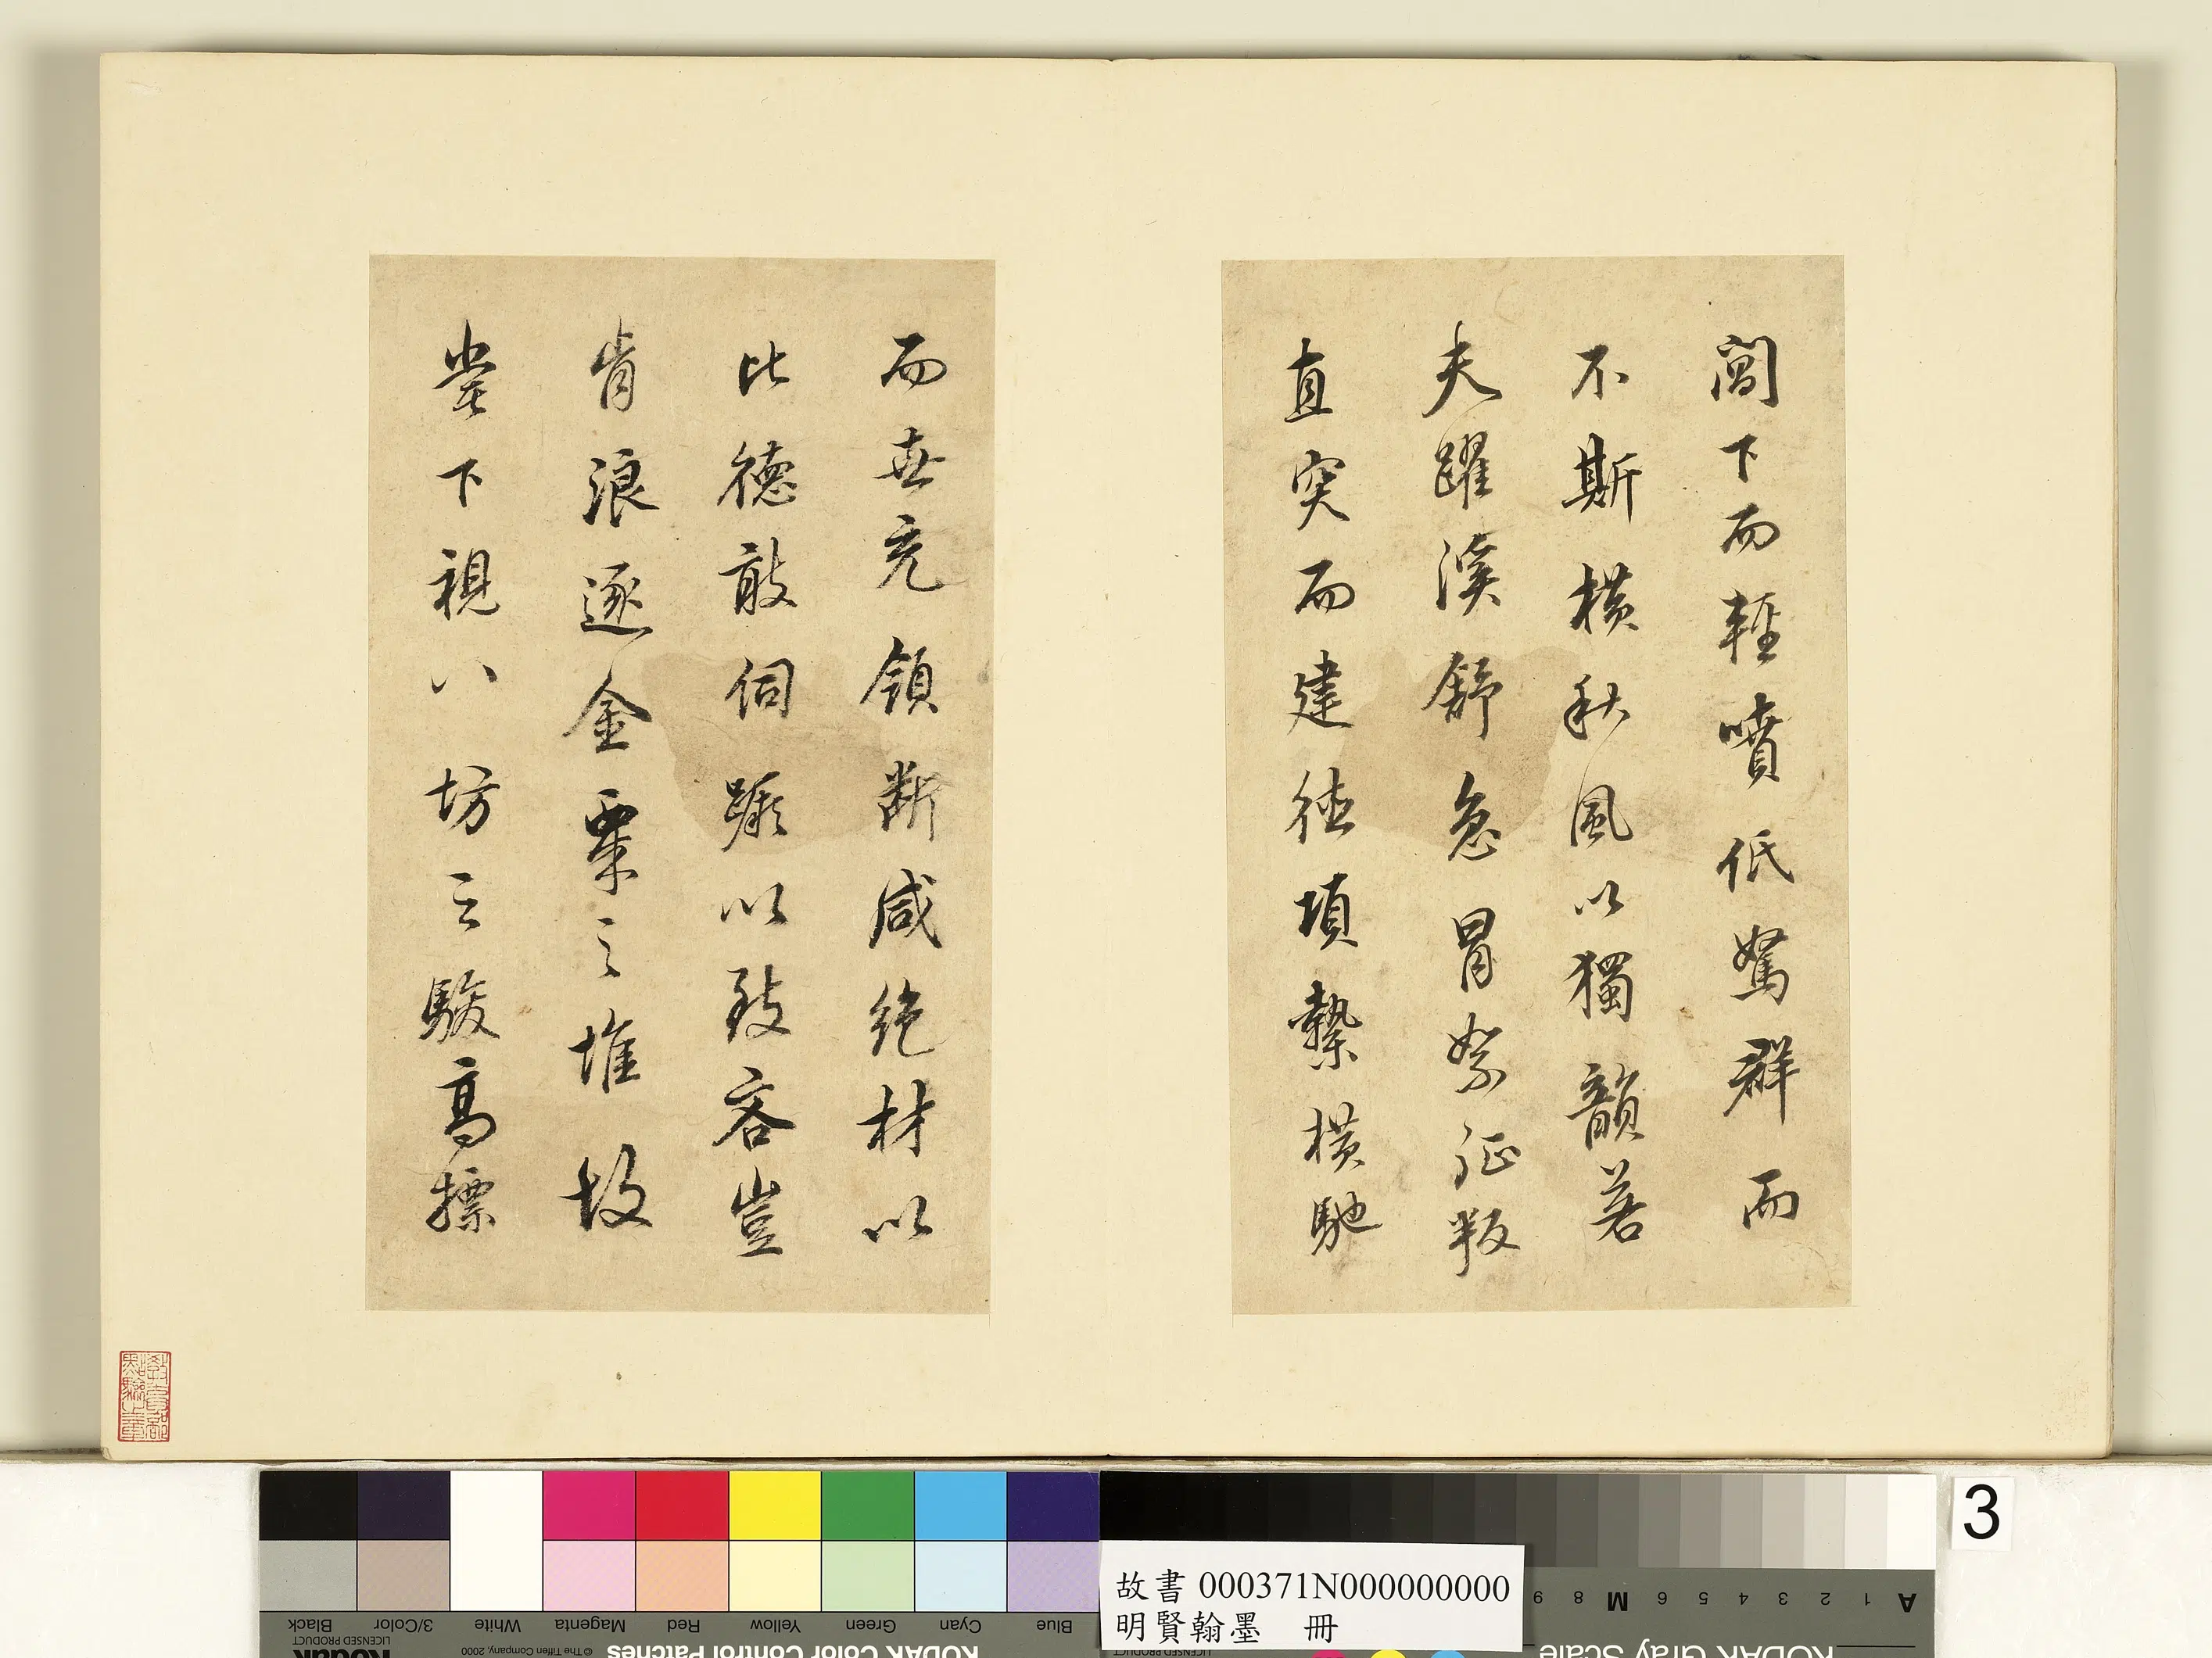 閣下而輕噴低駑群而
不斯橫秋風以獨韻若
夫躍溪舒急冒絮征叛
直突而建德項縶橫馳
而無充領斷咸絕材以
比德敢伺蹶以致吝豈
肯浪逐金粟之堆故
嘗下視八坊之駿高標
3
故書 000371N000000000
明賢翰墨 冊
Black
3/Color
White
Magenta
Red
Yellow
Green
Cyan
Blue
LICENSED PRODUCT
© The Tiffen Company, 2000
Kodak
KODAK Color Control Patches
KODAK Gray Scale
LICENSED PRODUCT
A 1 2 3 4 5 6 M 8 9
教育部點驗之章